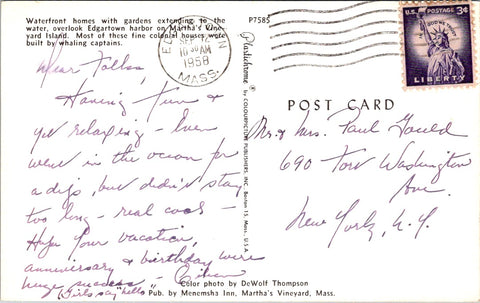 Waterfront homes with gardens extending to the
water, overlook Edgartown harbor on Martha's Vine-
yard Island. Most of these fine colonial houses were
built by whaling captains.
P7585
SEP
10 30 AM
1958
MASS.
U.S. POSTAGE 3¢
IN GOD WE TRUST
LIBERTY
Dear Folks,
Having fun &
yet relaxing - Even
went in the ocean for
a dip, but didn't stay
too long - real cool -
Hope your vacation,
anniversary & birthday were
huge success -
Girls say "hello"
Plastichrome ®
by COLOURPICTURE PUBLISHERS, INC. Boston 15, Mass., U.S.A.
POST CARD
Mr. & Mrs. Paul Gould
690 Fort Washington
Ave.
New York, N.Y.
Color photo by DeWolf Thompson
Pub. by Menemsha Inn, Martha's Vineyard, Mass.